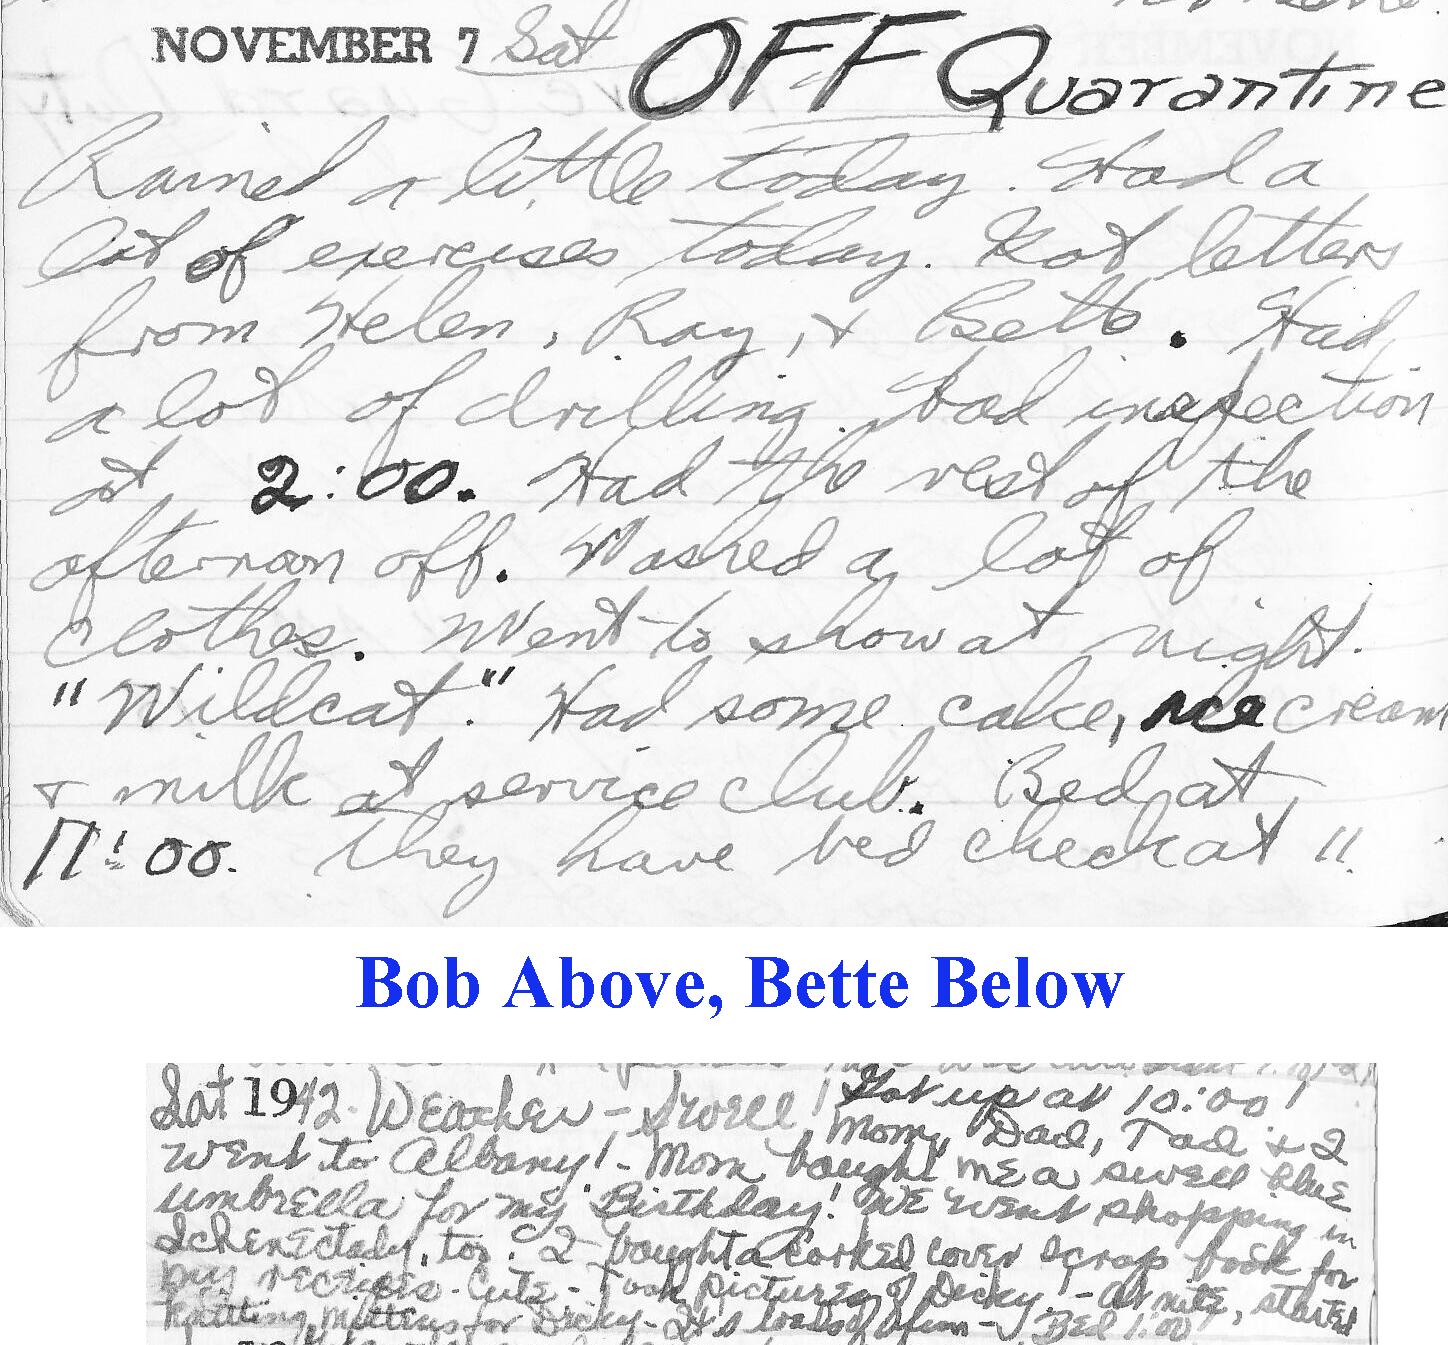 NOVEMBER 7 Sat OFF Quarantine
Rained a little today. Had a
lot of exercises today. Got letters
from Helen, Ray, & Bette. Had
a lot of drilling. Had inspection
at 2:00. Had the rest of the
afternoon off. Washed a lot of
clothes. Went to show at night.
"Wildcat." Had some cake, ice cream
& milk at service club. Bed at
11:00. They have bed check at 11.
Bob Above, Bette Below
Sat 1942. Weather - Swell! Got up at 10:00!
Mom, Dad, Tad & I
went to Albany! - Mom bought me a swell blue
umbrella for my Birthday! We went shopping in
Schenectady, too. I bought a corked cover scrap book for
my recipes. Cute - Took pictures of Dicky! - At nite, started
knitting mittens for Dicky - It's loads of fun - Bed 1:00